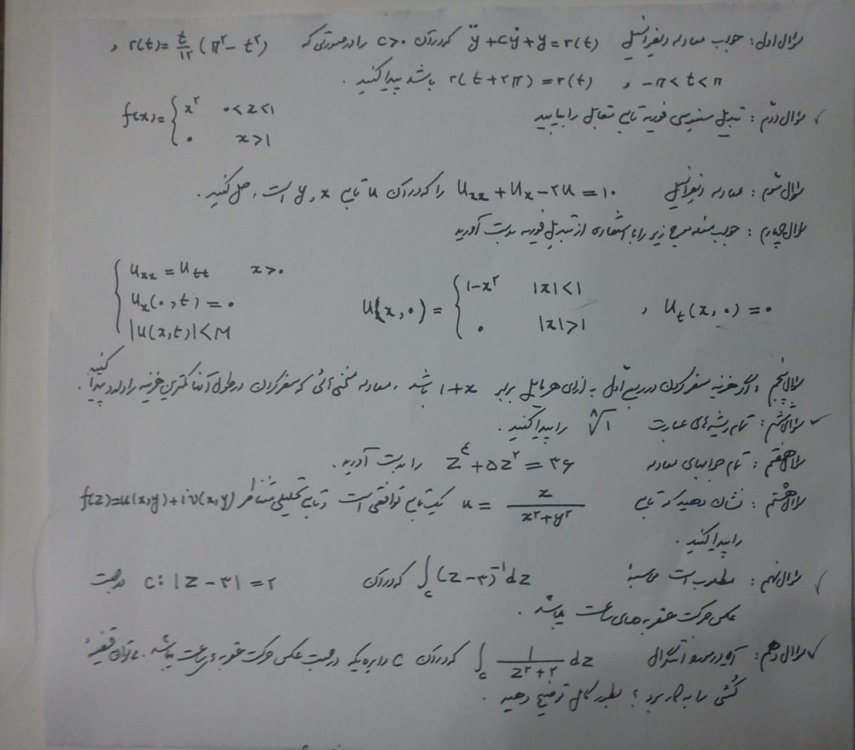 سؤال اول: جواب معادله دیفرانسیل ÿ + cẏ + y = r(t) که در آن c > ۰ را در صورتی که r(t) = t/۱۲ (π² - t²) و
-π < t < π , r(t + ۲π) = r(t) باشد پیدا کنید.
سؤال دوم: تبدیل سینوسی فوریه تابع مقابل را بیابید f(x) = { x² ۰<x<۱
۰ x>۱
سؤال سوم: معادله دیفرانسیل Uxx + Ux - ۲u = ۱۰ را که در آن u تابع x, y است، حل کنید.
سؤال چهارم: جواب مسئله موج زیر را با استفاده از تبدیل فوریه بدست آورید
{ Uxx = Utt x>۰
Ux(۰,t) = ۰
|u(x,t)| < M
U(x,۰) = { ۱-x² |x|<۱
۰ |x|>۱ , Ut(x,۰) = ۰
سؤال پنجم: اگر هزینه سفر کردن در ربع اول به ازای هر مایل برابر ۱+x باشد، معادله منحنی هائی که سفر کردن در طول آنها کمترین هزینه را دارد پیدا کنید.
سؤال ششم: تمام ریشه های عبارت ⁸√۱ را پیدا کنید.
سؤال هفتم: تمام جوابهای معادله z⁴ + ۵z² = ۳۶ را بدست آورید.
سؤال هشتم: نشان دهید که تابع u = x/(x²+y²) یک تابع توافقی است و تابع تحلیلی متناظر f(z)=u(x,y)+iv(x,y)
را پیدا کنید.
سؤال نهم: مطلوب است محاسبه ∫c (z-۳)⁻¹ dz که در آن c: |z-۳| = ۲ در جهت
عکس حرکت عقربه های ساعت میباشد.
سؤال دهم: آیا در مورد انتگرال ∫c 1/(z²+۲) dz که در آن c دایره یکه در جهت عکس حرکت عقربه ساعت میباشد. میتوان قضیه
کُشی را به کار برد؟ بطور کامل توضیح دهید.